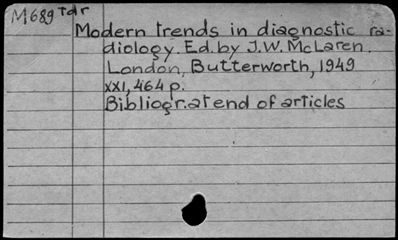 M689 rdr
Modern trends in diagnostic ra-
diology. Ed. by J.W. McLaren.
London, Butterworth, 1949
XXI, 464 p.
Bibliogr. at end of articles